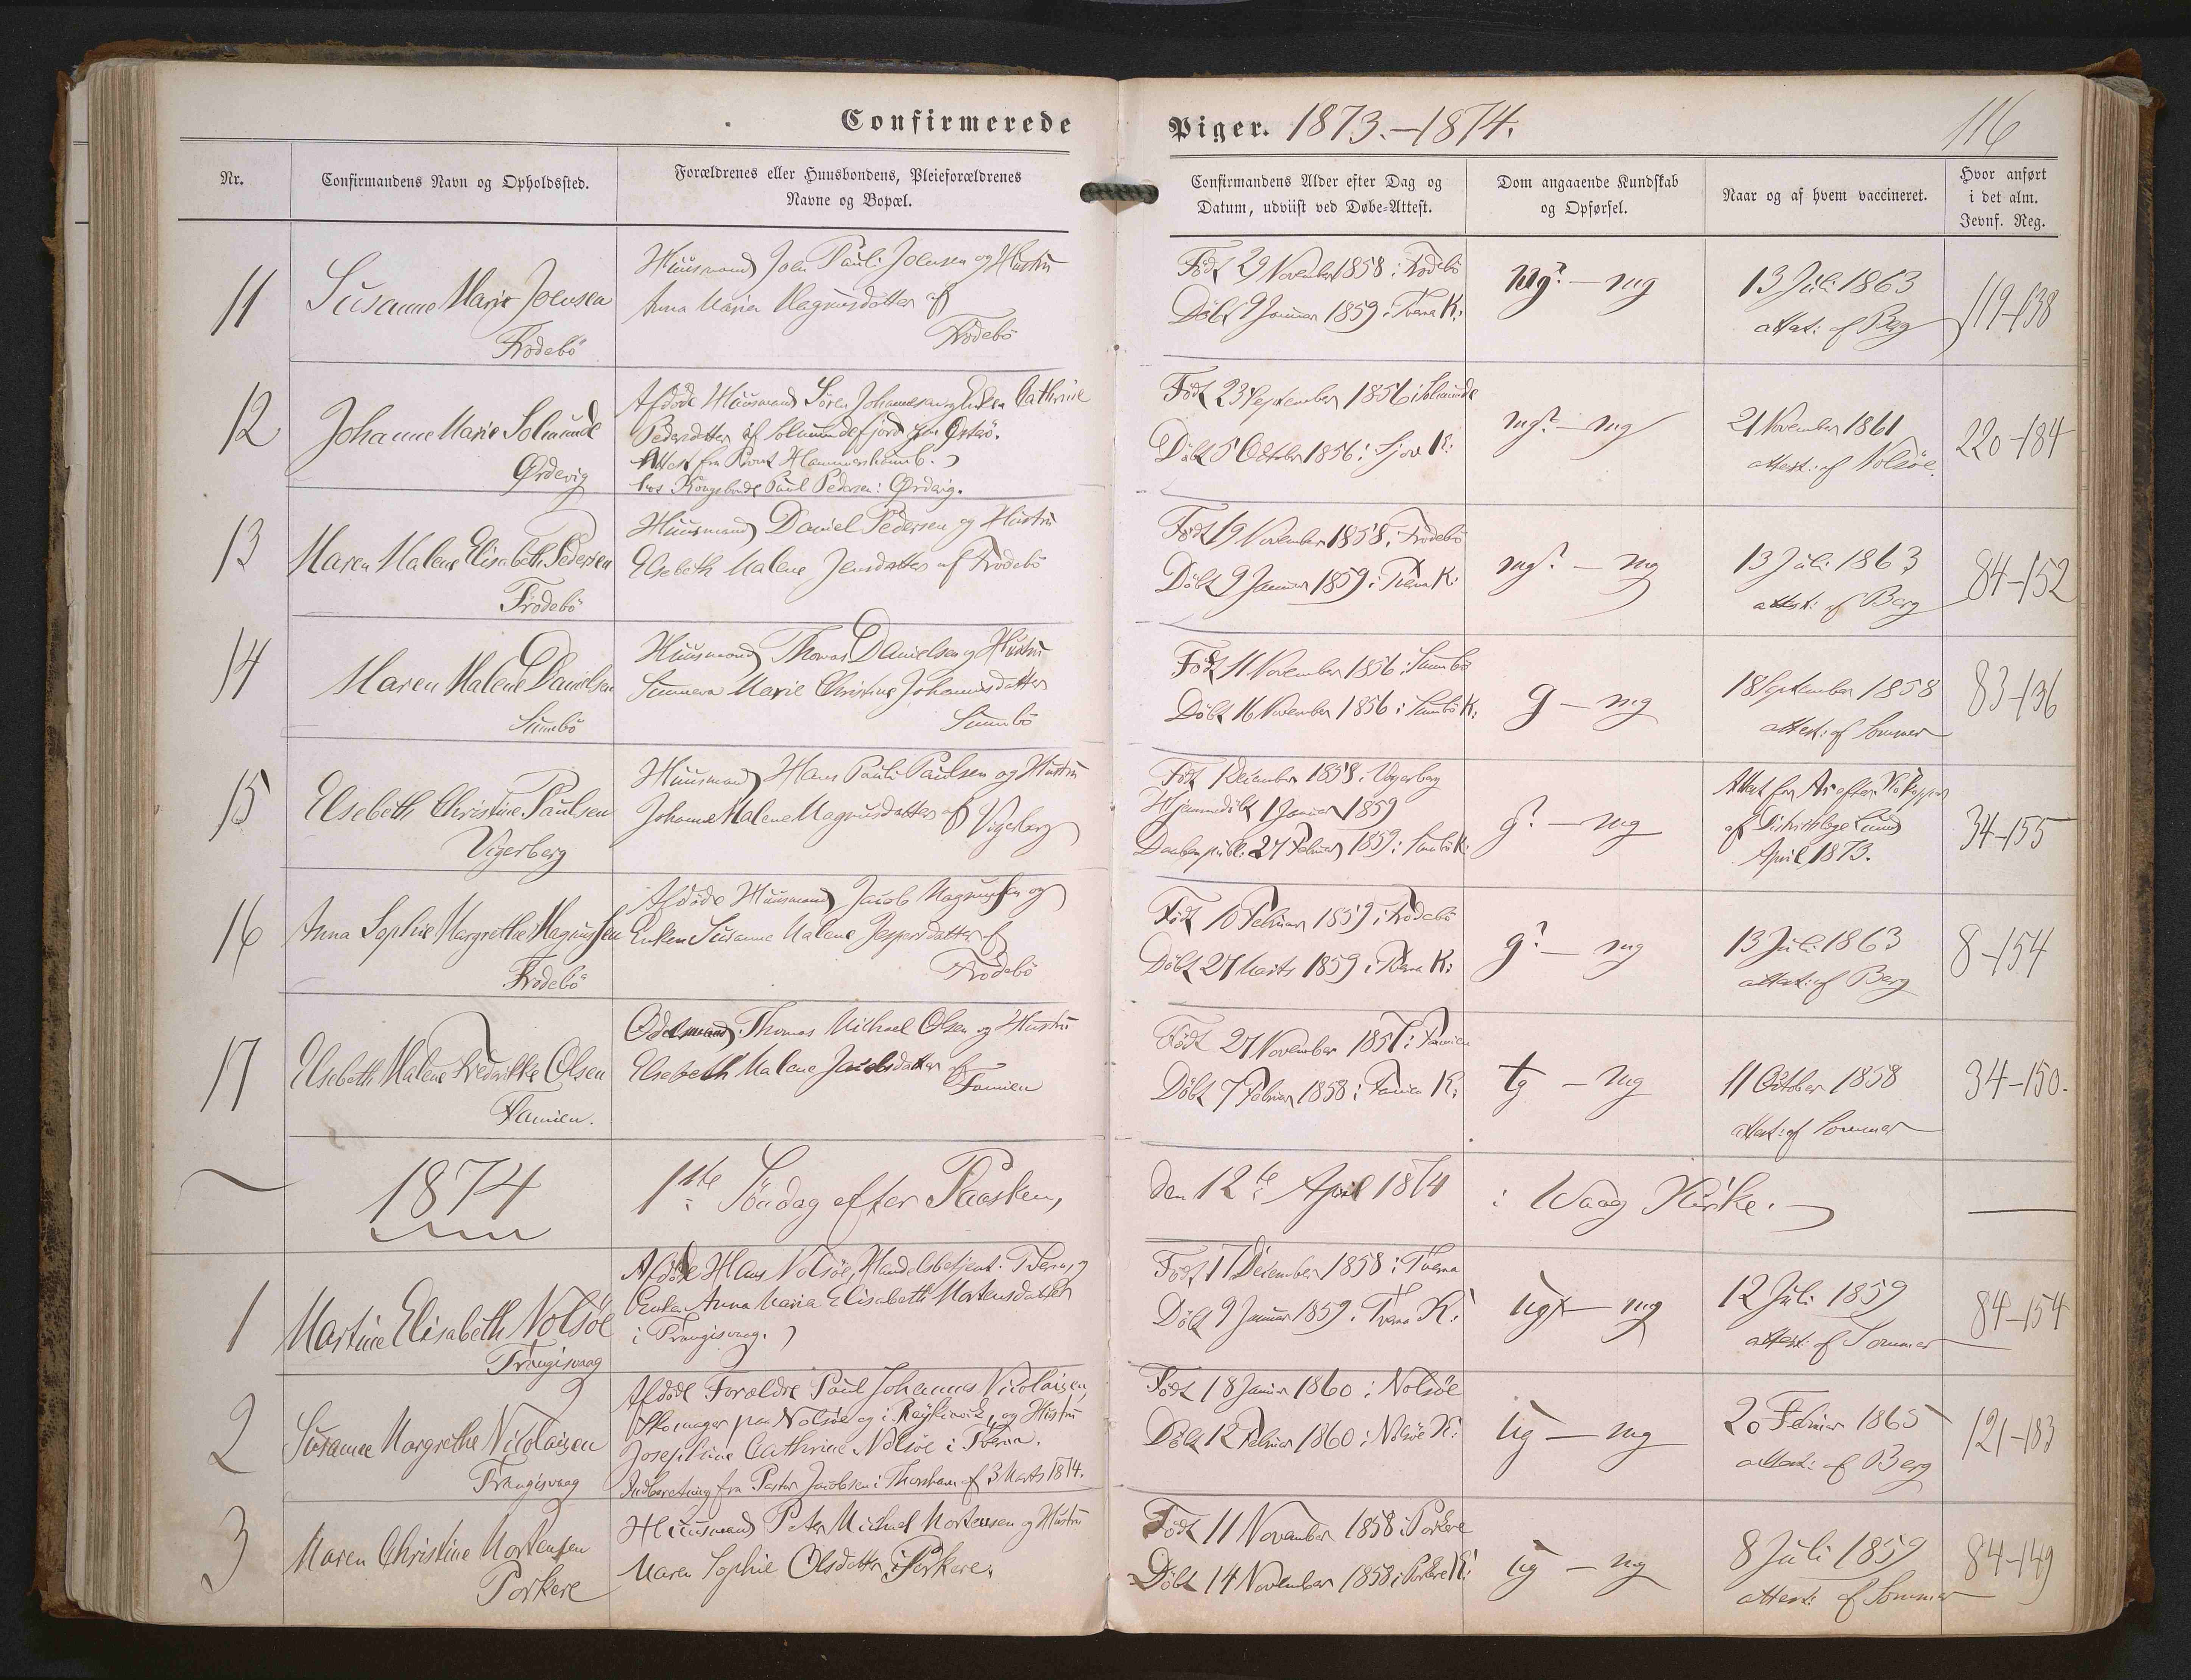 Confirmerede Piger. 1873.-1874.
116
Nr.
Confirmandens Navn og Opholdssted.
Forældrenes eller Huusbondens, Pleieforældrenes
Navne og Bopæl.
Confirmandens Alder efter Dag og
Datum, udviist ved Døbe-Attest.
Dom angaaende Kundskab
og Opførsel.
Naar og af hvem vaccineret.
Hvor anført
i det alm.
Jevnf. Reg.
11
Susanne Marie Joensen
Frodebö
Huusmand Joen Pauli Joensen og Hustru
Anna Maria Magnusdatter af
Frodebö
Födt 29 November 1858 i Frodebö
Döbt 9 Januar 1859 i Tvera K:
mg? - mg
13 Juli 1863
attest: af Berg
119-138
12
Johanne Marie Solmunde
Ørdevig
Afdöde Huusmand Sören Johannesen og Enken Cathrine
Pedersdatter af Solmundefjord paa Østerö.
Attest fra Provst Hammershaimb.
hos Kongsbonde Paul Pedersen i Ørdevig.
Födt 23 September 1856 i Solmunde
Döbt 5 October 1856 i Sjov K:
mg? - mg
21 November 1861
attest: af Nolsöe.
220-184
13
Maren Malene Elisabeth Pedersen
Frodebö
Huusmand Daniel Pedersen og Hustru
Elsebeth Malene Jensdatter af Frodebö
Födt 19 November 1858 i Frodebö
Döbt 9 Januar 1859 i Tvera K:
mg? - mg
13 Juli 1863
attest: af Berg
84-152
14
Maren Malene Danielsen
Sumbö
Huusmand Thomas Danielsen og Hustru
Sunneva Marie Christine Johannisdatter
Sumbö
Födt 11 November 1856 i Sumbö
Döbt 16 November 1856 i Sumbö K:
g - mg
18 September 1858
attest: af Sommer
83-136
15
Elsebeth Christine Paulsen
Vigerberg
Huusmand Hans Pauli Paulsen og Hustru
Johanne Malene Magnusdatter af Vigerberg
Födt December 1858 i Vigerberg
Hjemmedöbt 1 Januar 1859
Daaben publ: 27 Februar 1859 i Sumbö K:
g? - mg
Attest for Ar efter Kokopper
af Districtslæge Lund
April 1873.
34-155
16
Anna Sophie Margrethe Magnussen
Frodebö
Afdöde Huusmand Jacob Magnussen og
Enken Susanne Malene Jespersdatter af
Frodebö
Födt 10 Februar 1859 i Frodebö
Döbt 27 Marts 1859 i Tvera K:
g? - mg
13 Juli 1863
attest: af Berg
8-154
17
Elsebeth Malene Fredrikke Olsen
Famien.
Odelsmand Thomas Michael Olsen og Hustru
Elsebeth Malene Jacobsdatter af
Famien
Födt 27 November 1857 i Famien
Döbt 7 Februar 1858 i Famien K:
tg - mg
11 October 1858
attest: af Sommer
34-150.
1874
1ste Söndag efter Paasken,
den 12te April 1874
i Waag Kirke.
1
Martine Elisabeth Nolsöe
Trangisvaag
Afdöde Hans Nolsöe, Handelsbetjent i Tvera, og
Enken Anna Maria Elisabeth Mortensdatter
i Trangisvaag.
Födt 17 December 1858 i Tvera
Döbt 9 Januar 1859 i Tvera K:
ug - mg
12 Juli 1859
attest: af Sommer
84-154
2
Susanne Margrethe Nicolaisen
Trangisvaag
Afdöde Forældre Paul Johannes Nicolaisen,
Skomager paa Nolsöe og i Reykiavik, og Hustru
Josephine Cathrine Nolsöe i Tvera.
Indberetning fra Pastor Jacobsen i Thorshavn af 3 Marts 1874.
Födt 18 Januar 1860 i Nolsöe
Döbt 12 Februar 1860 i Nolsöe K:
ug - mg
20 Februar 1865
attest: af Berg
121-183
3
Maren Christine Mortensen
Porkere
Huusmand Peter Michael Mortensen og Hustru
Maren Sophie Olsdatter i Porkere.
Födt 11 November 1858 i Porkere
Döbt 14 November 1858 i Porkere K:
ug - mg
8 Juli 1859
attest: af Sommer
84-149